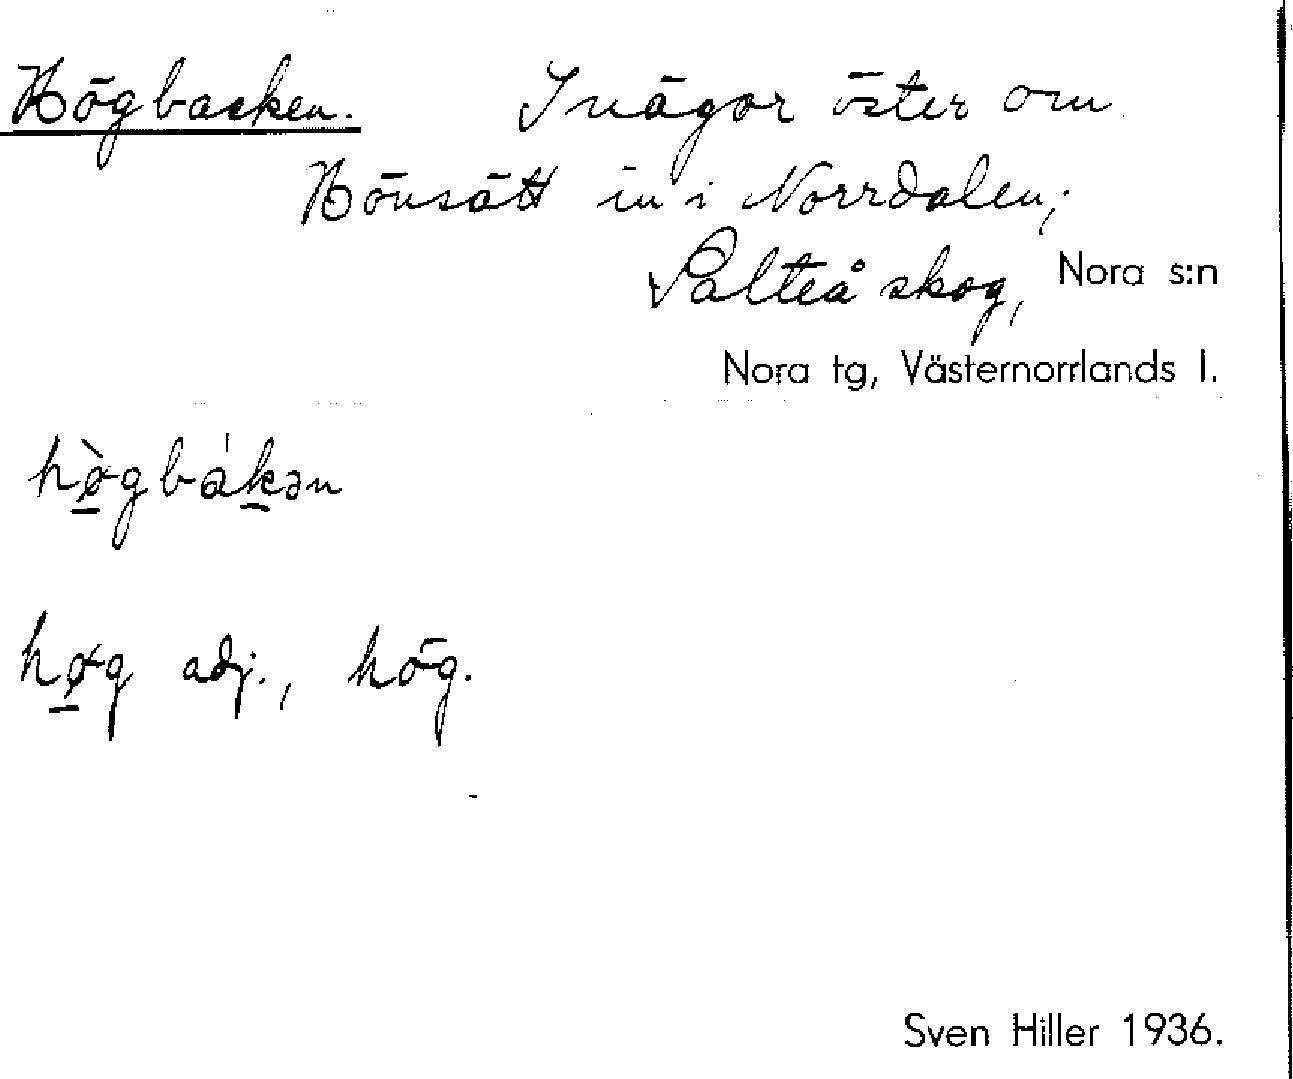 Högbacken. Inägor öster om
Hönsätt in i Norrdalen;
Salteå skog, Nora s:n
Nora tg, Västernorrlands l.
hø̀gbákən
høg adj., hög.
Sven Hiller 1936.